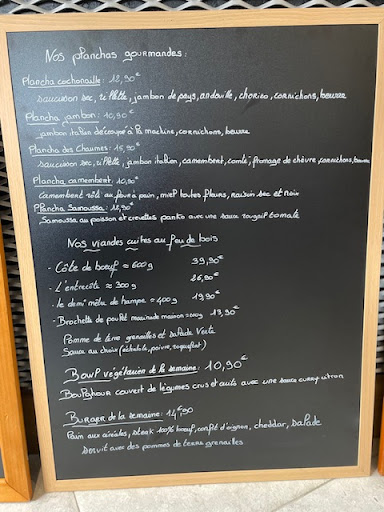 Nos planchas gourmandes:
Plancha cochonaille: 12,90€
saucisson sec, rillette, jambon de pays, andouille, chorizo, cornichons, beurre
Plancha jambon: 10,90€
jambon italien découpé à la machine, cornichons, beurre
Plancha des Chaumes: 15,90€
saucisson sec, rillette, jambon italien, camembert, comté, fromage de chèvre, cornichons, beurre
Plancha camembert: 10,90€
Camembert rôti au four à pain, miel toutes fleurs, raisin sec et noix
Plancha Samoussa: 12,90€
Samoussa au poisson et crevettes panko avec une sauce rougail tomate
Nos viandes cuites au feu de bois
- Côte de boeuf ≈ 600g 39,90€
- L'entrecôte ≈ 300g 26,90€
- le demi mètre de hampe ≈ 400g 19,90€
- Brochette de poulet marinade maison ≈ 200g 13,90€
Pomme de terre grenailles et salade verte
Sauce au choix (échalote, poivre, roquefort)
Boul végétarien de la semaine: 10,90€
couvert de légumes crus et cuits avec une sauce curry citron
Burger de la semaine: 14€90
Pain aux céréales, steak 100% boeuf, confit d'oignon, cheddar, salade
Servit avec des pommes de terre grenailles